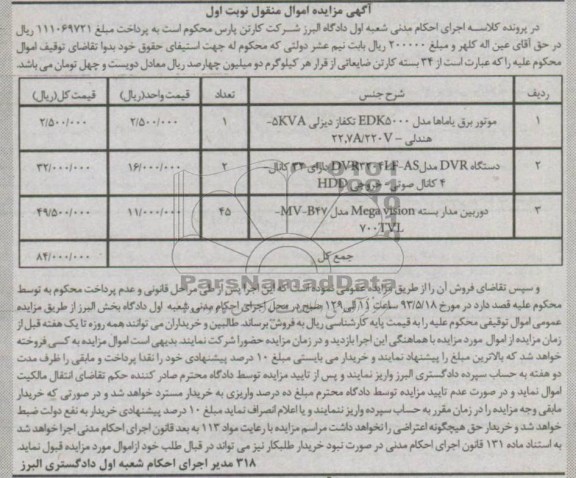 آگهی مزایده اموال منقول نوبت اول
در پرونده کلاسه اجرای احکام مدنی شعبه اول دادگاه البرز شرکت کارتن پارس محکوم است به پرداخت مبلغ ۱۱۱۰۶۹۷۲۱ ریال
در حق آقای عین اله کلهر و مبلغ ۲۰۰۰۰۰ ریال بابت نیم عشر دولتی که محکوم له جهت استیفای حقوق خود بدوا تقاضای توقیف اموال
محکوم علیه را که عبارت است از ۳۴ بسته کارتن ضایعاتی از قرار هر کیلوگرم دو میلیون چهارصد ریال معادل دویست و چهل تومان می باشد.
ردیف شرح جنس تعداد قیمت واحد(ریال) قیمت کل(ریال)
۱ موتور برق یاماها مدل EDK۵۰۰۰ تکفاز دیزلی ۵KVA-
هندلی – ۲۲,۷A/۲۲۰V ۱ ۲/۵۰۰/۰۰۰ ۲/۵۰۰/۰۰۰
۲ دستگاه DVR مدل دارای ۳۲ کانال-
۴ کانال صوتی- خروجی HDD ۲ ۱۶/۰۰۰/۰۰۰ ۳۲/۰۰۰/۰۰۰
۳ دوربین مدار بسته Mega vision مدل MV-B۴۷-
۷۰۰TVL ۴۵ ۱۱/۰۰۰/۰۰۰ ۴۹/۵۰۰/۰۰۰
جمع کل ۸۴/۰۰۰/۰۰۰
ParsNamadData
و سپس تقاضای فروش آن را از طریق مزایده این اجرا پس از طی مراحل قانونی و عدم پرداخت محکوم به توسط
محکوم علیه قصد دارد در مورخ ۹۳/۵/۱۸ ساعت ۱۱ الی ۱۲ صبح در محل اجرای احکام مدنی شعبه اول دادگاه بخش البرز از طریق مزایده
عمومی اموال توقیفی محکوم علیه را به قیمت پایه کارشناسی ریال به فروش برساند. طالبین و خریداران می توانند همه روزه تا یک هفته قبل از
زمان مزایده از اموال مورد مزایده با هماهنگی این اجرا بازدید و در زمان مزایده حضورا شرکت نمایند. بدیهی است اموال مزایده به کسی فروخته
خواهد شد که بالاترین مبلغ را پیشنهاد نمایند و خریدار می بایستی مبلغ ۱۰ درصد پیشنهادی خود را نقدا پرداخت و مابقی را ظرف مدت
دو هفته به حساب سپرده دادگستری البرز واریز نمایند و پس از تایید مزایده توسط دادگاه محترم صادر کننده حکم تقاضای انتقال مالکیت
اموال نماید و در صورت عدم تایید مزایده توسط دادگاه محترم مبلغ ده درصد واریزی به خریدار مسترد خواهد شد و در صورتی که خریدار
مابقی وجه مزایده را در زمان مقرر به حساب سپرده واریز ننمایند و یا اعلام انصراف نماید مبلغ ۱۰ درصد پیشنهادی خریدار به نفع دولت ضبط
خواهد شد و خریدار حق هیچگونه اعتراضی را نخواهد داشت مراسم مزایده با رعایت مواد ۱۱۳ به بعد قانون اجرای احکام مدنی اجرا خواهد شد
به استناد ماده ۱۳۱ قانون اجرای احکام مدنی در صورت نبود خریدار طلبکار نیز می تواند در قبال طلب خود از اموال مورد مزایده قبول نماید.
۳۱۸ مدیر اجرای احکام شعبه اول دادگستری البرز